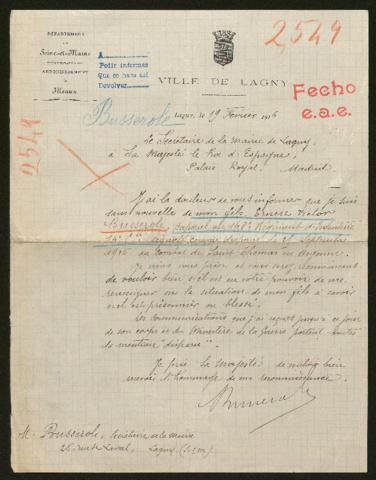 DÉPARTEMENT
DE
Seine-et-Marne
ARRONDISSEMENT
de
Meaux
A
Pedir informes
Que se haga así
Devolver
2549
VILLE DE LAGNY
Fecho
e.a.e.
Busserole
Lagny, le 29 Février 1916
2549
Le Secrétaire de la mairie de Lagny
à Sa Majesté le Roi d'Espagne,
Palais Royal. Madrid
J'ai la douleur de vous informer que je suis
sans nouvelle de mon fils Ernest Victor
Busserole, caporal au Régiment d'Infanterie
disparu le septembre
1915 au combat de Saint Thomas en Argonne.
Je viens vous prier
de vouloir bien s'il est en votre pouvoir de me
renseigner sur la situation de mon fils à savoir
s'il est prisonnier ou blessé.
Les communications que j'ai reçues jusqu'à ce jour
de son corps et du Ministère de la Guerre portent toutes
la mention "disparu".
Je prie Sa Majesté de vouloir bien
l'hommage de ma reconnaissance.
M. Busserole, Secrétaire de la mairie
26, rue Laval, Lagny (S. et M.)